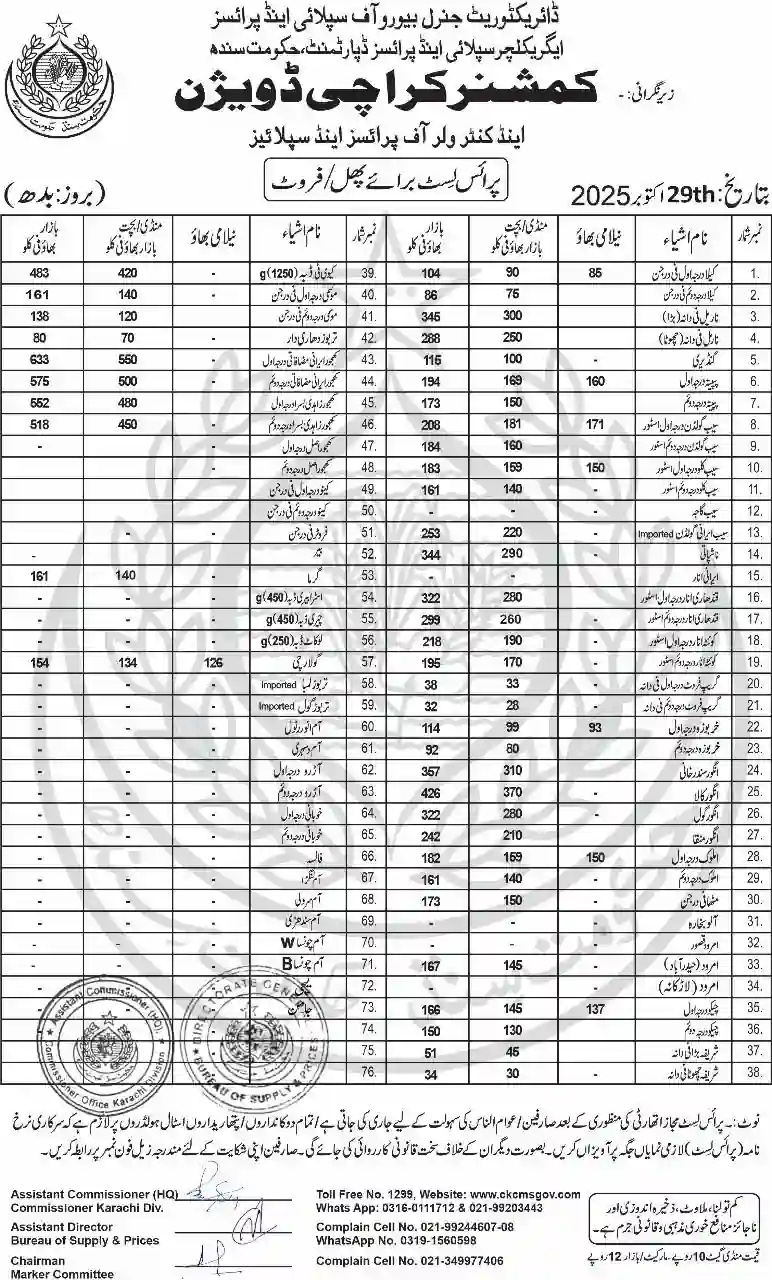 ڈائریکٹوریٹ جنرل بیورو آف سپلائی اینڈ پرائسز
ایگریکلچر سپلائی اینڈ پرائسز ڈپارٹمنٹ، حکومت سندھ
زیر نگرانی:- کمشنر کراچی ڈویژن
اینڈ کنٹرولر آف پرائسز اینڈ سپلائیز
پرائس لسٹ برائے پھل/فروٹ
تاریخ: 29th اکتوبر 2025 (بروز: بدھ)
نمبر شمار نام اشیاء نیلامی بھاؤ منڈی/بچت بازار بھاؤ فی کلو بازار بھاؤ فی کلو
1. کیلا درجہ اول فی درجن 85 90 104
2. کیلا درجہ دوئم فی درجن 75 86
3. ناریل فی دانہ (بڑا) 300 345
4. ناریل فی دانہ (چھوٹا) 250 288
5. گنڈیری - 100 115
6. پپیتہ درجہ اول 160 169 194
7. پپیتہ درجہ دوئم 150 173
8. سیب گولڈن درجہ اول اسٹور 171 181 208
9. سیب گولڈن درجہ دوئم اسٹور - 160 184
10. سیب کلو درجہ اول اسٹور 150 159 183
11. سیب کلو درجہ دوئم اسٹور - 140 161
12. سیب گاچہ - - -
13. سیب ایرانی گولڈن Imported - 220 253
14. ناشپاتی - 290 344
15. ایرانی انار - -
16. قندھاری انار درجہ اول اسٹور 280 322
17. قندھاری انار درجہ دوئم اسٹور - 260 299
18. کوئٹہ انار درجہ اول اسٹور - 190 218
19. کوئٹہ انار درجہ دوئم اسٹور - 170 195
20. گریپ فروٹ درجہ اول فی دانہ - 33 38
21. گریپ فروٹ درجہ دوئم فی دانہ - 28 32
22. خربوزہ درجہ اول 93 99 114
23. خربوزہ درجہ دوئم 80 92
24. انگور سندرخانی - 310 357
25. انگور کالا - 370 426
26. انگور گول - 280 322
27. انگور منقا - 210 242
28. املوک درجہ اول 150 159 182
29. املوک درجہ دوئم - 140 161
30. مٹھا فی درجن - 150 173
31. آلو بخارہ - - -
32. امرود قصور - - -
33. امرود (حیدرآباد) - 145 167
34. امرود (لاڑکانہ) - - -
35. چیکو درجہ اول 137 145 166
36. چیکو درجہ دوئم 130 150
37. شریفہ بڑا فی دانہ - 45 51
38. شریفہ چھوٹا فی دانہ - 30 34
نمبر شمار نام اشیاء نیلامی بھاؤ منڈی/بچت بازار بھاؤ فی کلو بازار بھاؤ فی کلو
39. کیوی فی ڈبہ (1250)g - 420 483
40. موسمی درجہ اول فی درجن - 140 161
41. موسمی درجہ دوئم فی درجن 120 138
42. تربوز دھاری دار - 70 80
43. کھجور ایرانی مضافاتی درجہ اول - 550 633
44. کھجور ایرانی مضافاتی درجہ دوئم - 500 575
45. کھجور زاہدی بسرا درجہ اول - 480 552
46. کھجور زاہدی بسرا درجہ دوئم - 450 518
47. کھجور اصل درجہ اول - - -
48. کھجور اصل درجہ دوئم - - -
49. کینو درجہ اول فی درجن -
50. کینو درجہ دوئم فی درجن
51. فروٹر فی درجن - -
52. بیر - -
53. گرما - 140 161
54. اسٹرابیری ڈبہ (450)g - - -
55. چیری ڈبہ (450)g - - -
56. لوکاٹ ڈبہ (250)g - - -
57. گولارچی 126 134 154
58. تربوز لمبا Imported - - -
59. تربوز گول Imported - - -
60. آم انور رٹول - - -
61. آم دسہری - - -
62. آڑو درجہ اول - - -
63. آڑو درجہ دوئم - - -
64. خوبانی درجہ اول - - -
65. خوبانی درجہ دوئم - - -
66. فالسہ - - -
67. آم لنگڑا - - -
68. آم سرولی - - -
69. آم سندھڑی - - -
70. آم چونسا W - - -
71. آم چونسا B - - -
72. لیچی
73. جامن
74.
75.
76.
Assistant Commissioner (HQ).
Commissioner Office Karachi Division
DIRECTORATE GENERAL
BUREAU OF SUPPLY & PRICES
نوٹ:- پرائس لسٹ مجاز اتھارٹی کی منظوری کے بعد صارفین/عوام الناس کی سہولت کے لیے جاری کی جاتی ہے/تمام دوکانداروں/پتھاریداروں اسٹال ہولڈروں پر لازم ہے کہ سرکاری نرخ
نامہ (پرائس لسٹ) لازمی نمایاں جگہ پر آویزاں کریں۔ بصورت دیگر ان کے خلاف سخت قانونی کارروائی کی جائے گی۔ صارفین اپنی شکایت کے لئے مندرجہ ذیل فون نمبر پر رابطہ کریں۔
Assistant Commissioner (HQ)
Commissioner Karachi Div.
Assistant Director
Bureau of Supply & Prices
Chairman
Marker Committee
Toll Free No. 1299, Website: www.ckcmsgov.com
Whats App: 0316-0111712 & 021-99203443
Complain Cell No. 021-99244607-08
WhatsApp No. 0319-1560598
Complain Cell No. 021-349977406
کم تولنا، ملاوٹ، ذخیرہ اندوزی اور
ناجائز منافع خوری مذہبی و قانونی جرم ہے۔
قیمت منڈی گیٹ 10 روپے، مارکیٹ/بازار 12 روپے